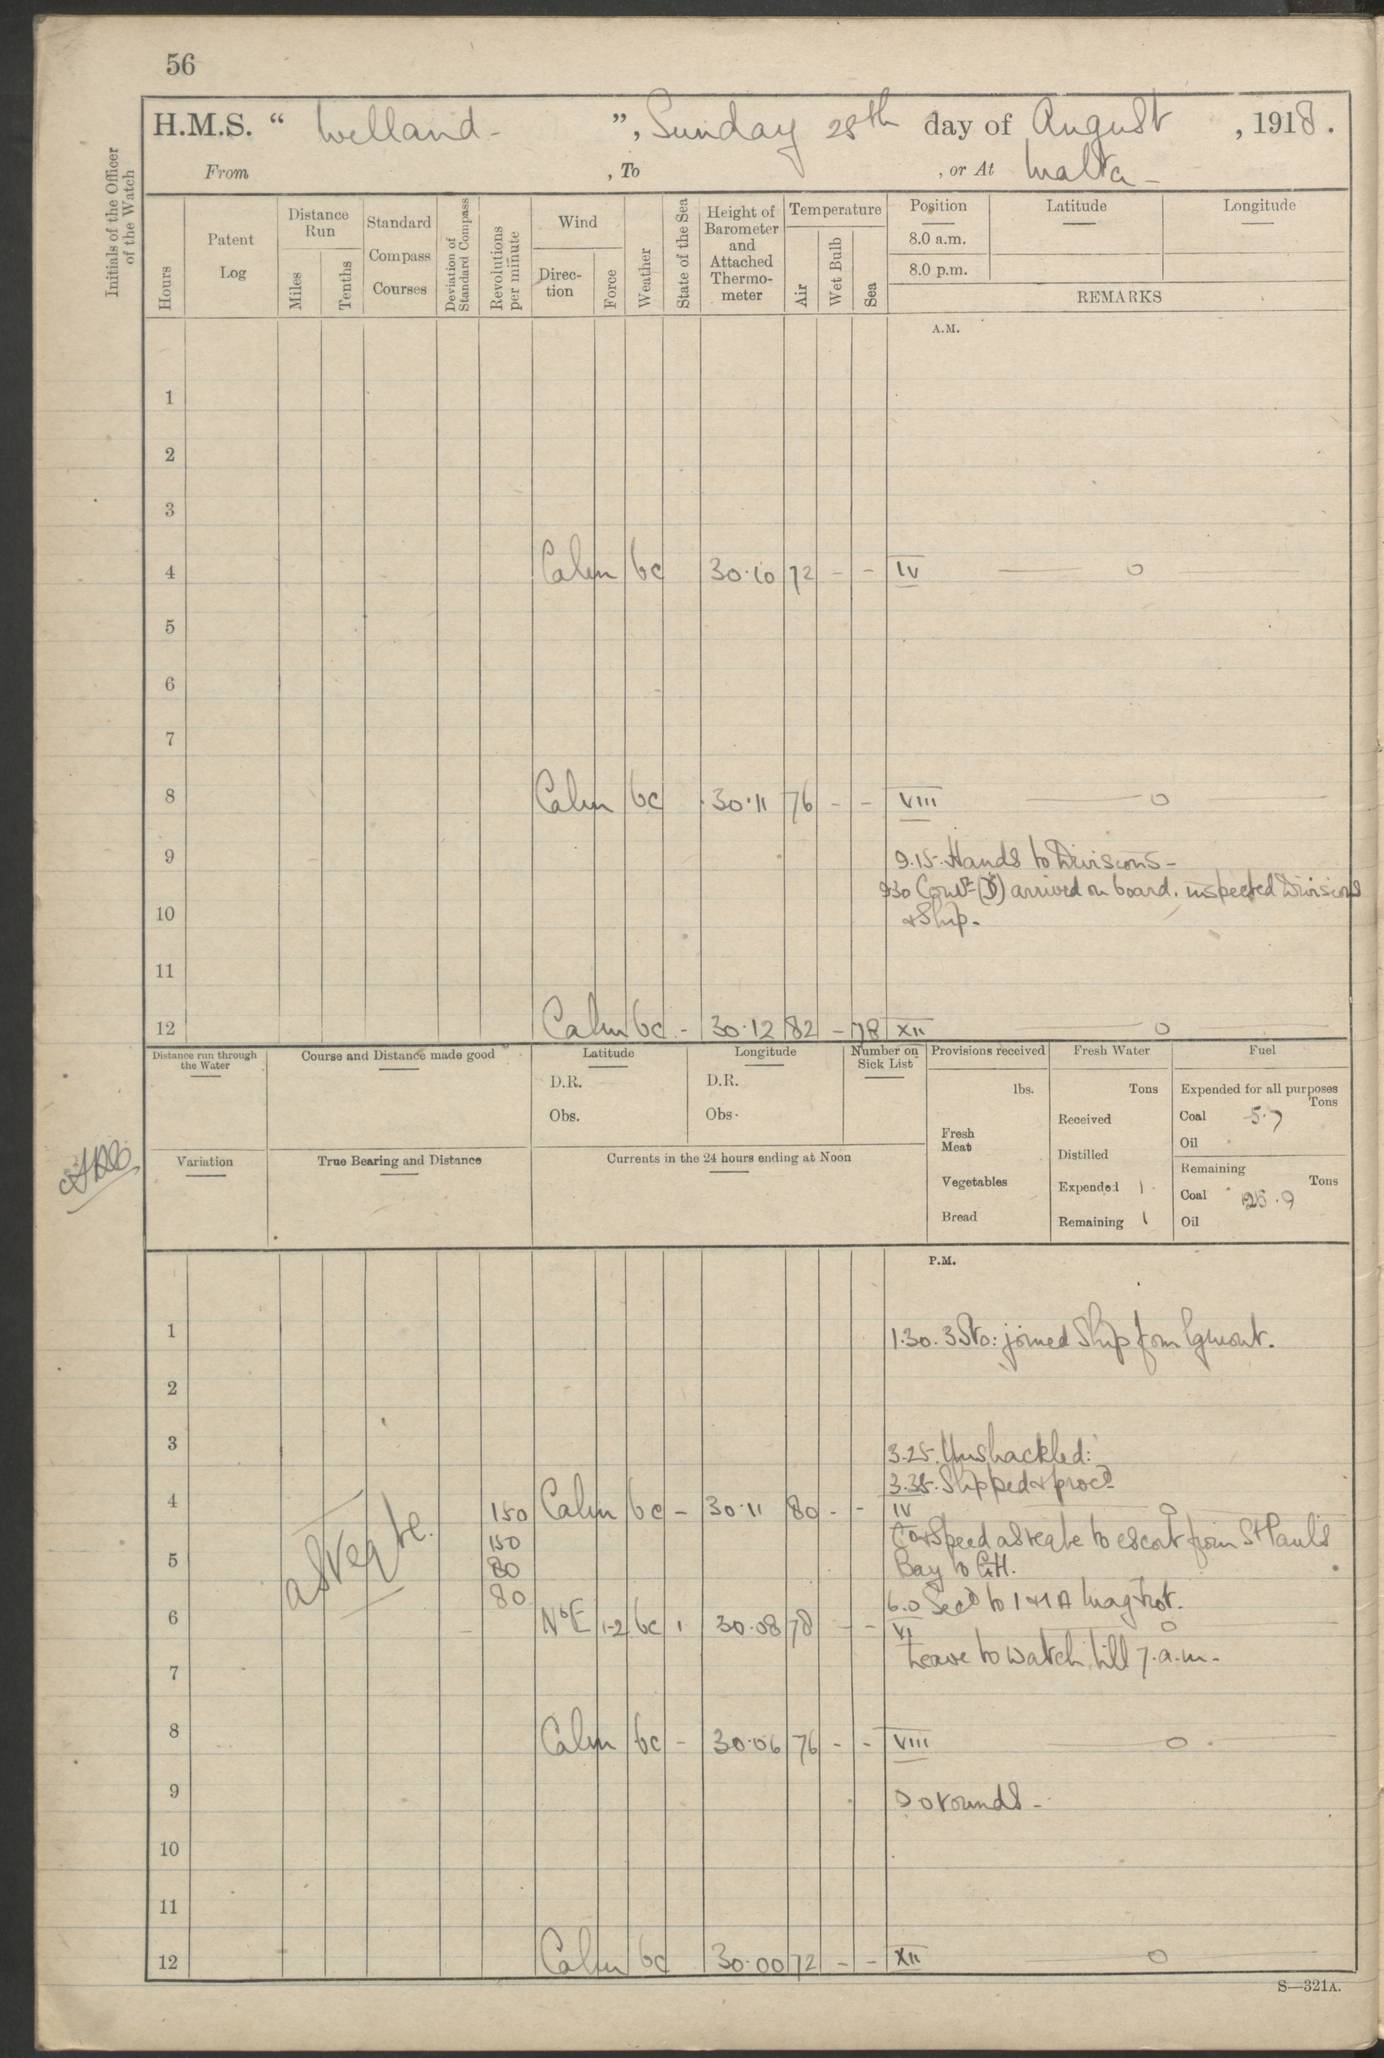 56
H.M.S. “ Welland - ”, Sunday 25th day of August , 1918.
From , To , or At Malta -
Initials of the Officer of the Watch
Hours
Patent Log
Distance Run
Miles
Tenths
Standard Compass Courses
Deviation of Standard Compass
Revolutions per minute
Wind
Direc-tion
Force
Weather
State of the Sea
Height of Barometer and Attached Thermo-meter
Temperature
Air
Wet Bulb
Sea
Position
Latitude
Longitude
8.0 a.m.
8.0 p.m.
REMARKS
A.M.
1
2
3
4 Calm bc 30.10 72 - - IV
5
6
7
8 Calm bc 30.11 76 - - VIII
9 9.15. Hands to Divisions -
9.30 Comdr (D) arrived on board. inspected Divisions
10 & Ship.
11
12 Calm bc - 30.12 82 - 78 XII
Distance run through the Water
Course and Distance made good
Latitude
D.R.
Obs.
Longitude
D.R.
Obs.
Number on Sick List
Provisions received
lbs.
Fresh Meat
Vegetables
Bread
Fresh Water
Tons
Received
Distilled
Expended 1
Remaining 1
Fuel
Expended for all purposes
Tons
Coal 5.7
Oil
Remaining
Tons
Coal
Oil
Variation
True Bearing and Distance
Currents in the 24 hours ending at Noon
P.M.
1 1.30. 3 Sto: joined Ship from Egmont.
2
3 3.25. Unshackled:
3.35. Slipped & procd
4 150 Calm bc - 30.11 80 - - IV
as reqte.
150 Co & Speed as reqte to escort from St Paul's
5 80 Bay to G.H.
80 6.0 Secd to 1 & 1A Magtrot.
6 NbE 1-2 bc 1 30.08 78 - - VI
Leave to watch till 7.a.m.-
7
8 Calm bc - 30.06 76 - - VIII
9 9.0 rounds -
10
11
12 Calm bc 30.00 72 - - XII
S—321A.